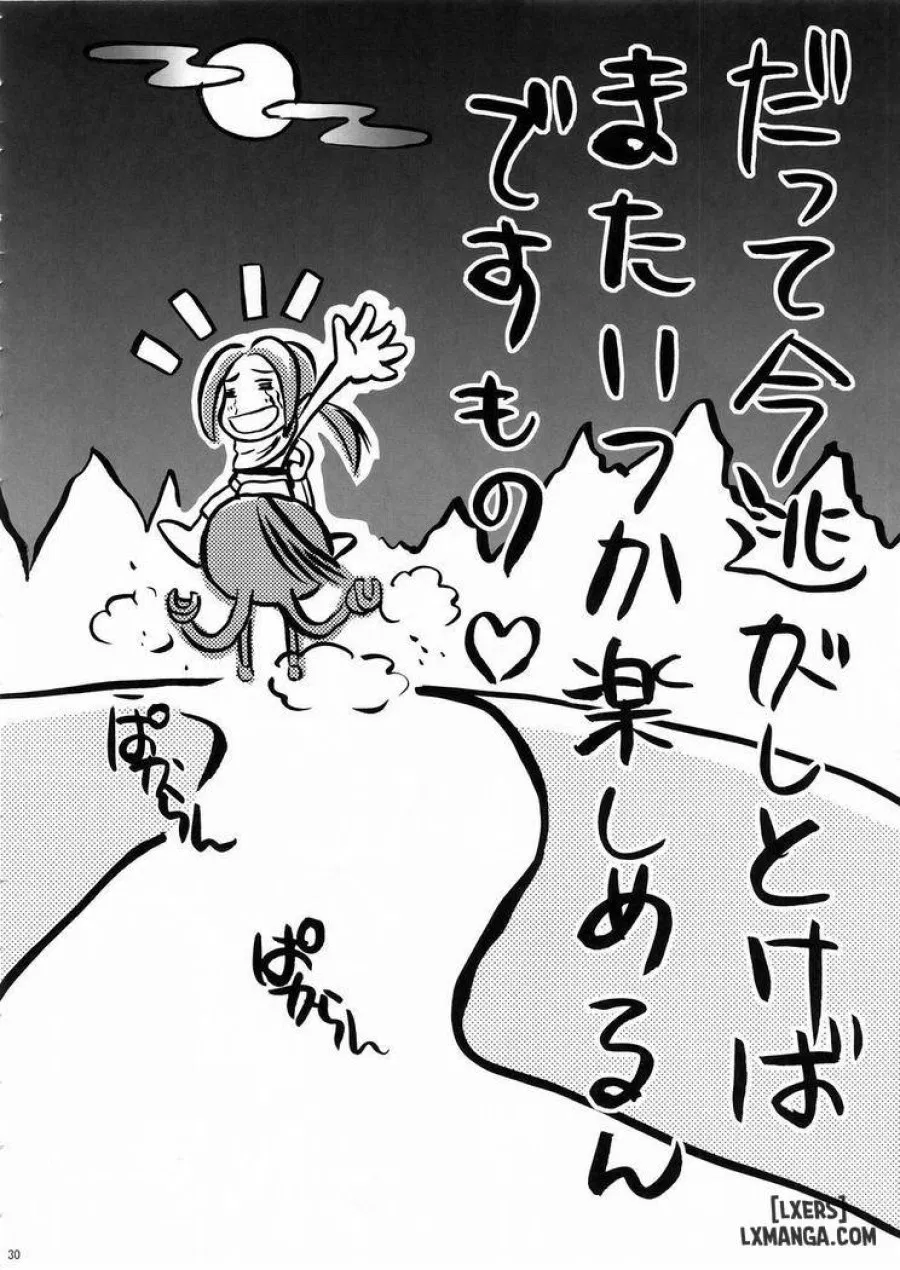 だって今逃がしとけば
またいつか楽しめるん
ですもの♡
ぱからん
ぱからん
30
[LXERS]
LXMANGA.COM